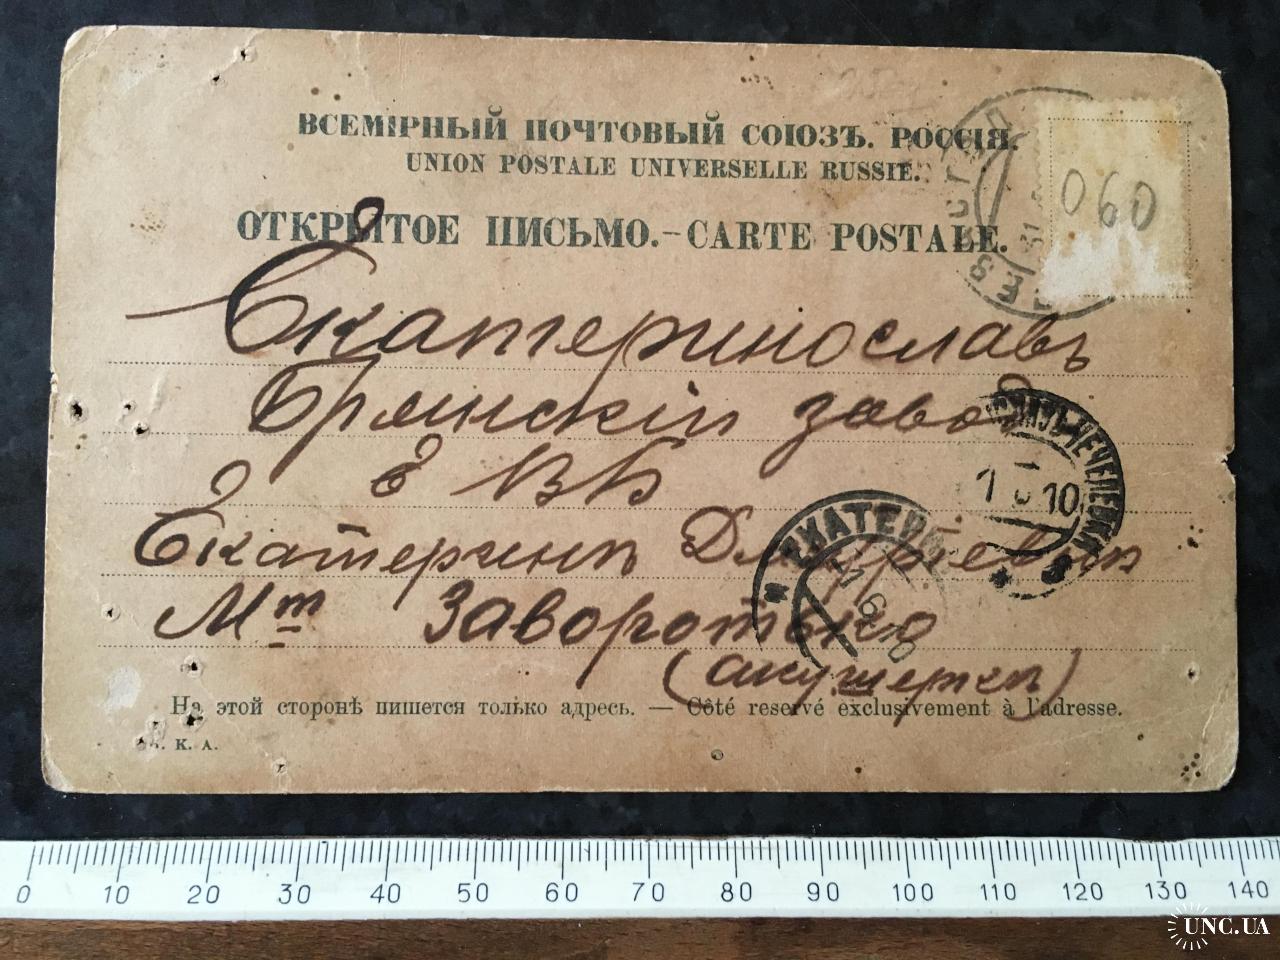 ВСЕМІРНЫЙ ПОЧТОВЫЙ СОЮЗЪ. РОССІЯ.
UNION POSTALE UNIVERSELLE RUSSIE.
ОТКРЫТОЕ ПИСЬМО.-CARTE POSTALE.
060
31
Екатеринославъ
Брянскій завод
Е ВБ
1 6 10
ЕКАТЕРИН
Екатеринѣ Дмитріевнѣ
1 6 10
Мт Заворотько
(акушеркѣ)
На этой сторонѣ пишется только адресъ. — Côté reservé exclusivement à l'adresse.
К. А.
0 10 20 30 40 50 60 70 80 90 100 110 120 130 140
UNC.UA